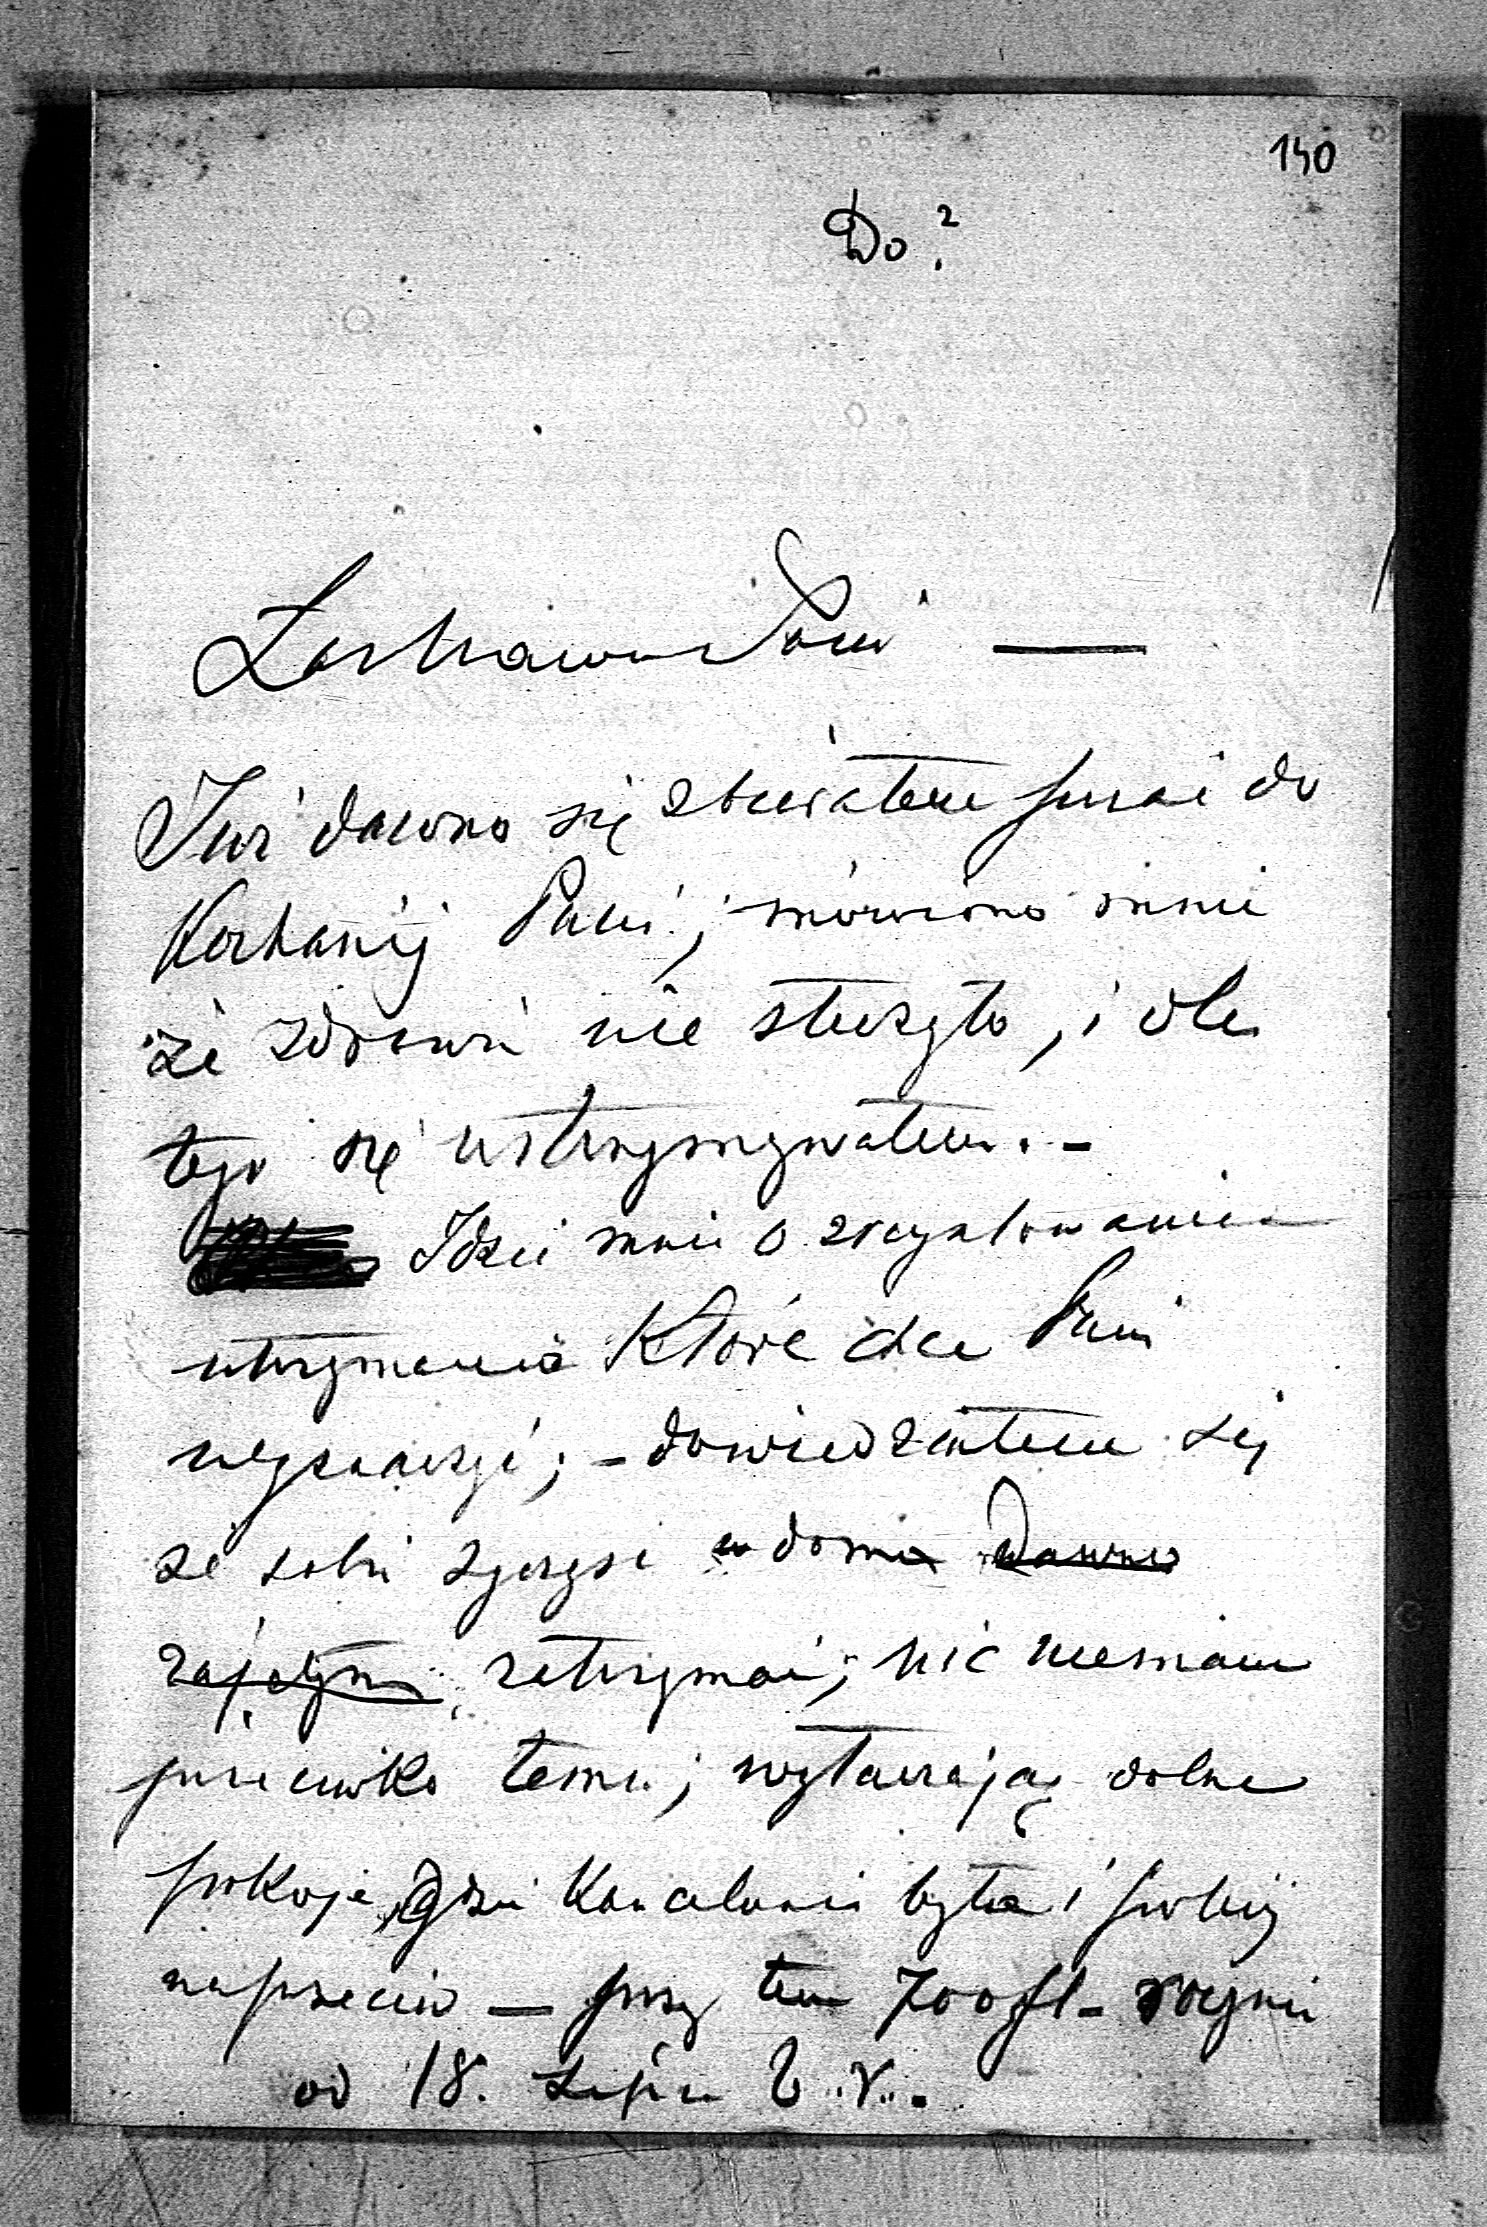 140
Do?
Łaskawa Pani —
Już dawno się zbierałem pisać do
Kochanéj Pani; mówiono mnie
że zdrowie nie służyło, i dla
tego się wstrzymywałem. -
Idzie mnie o uregulowanie
utrzymania które chce Pani
wyznaczyć; - dowiedziałem się
że sobie życzysz w domu dawno
zajętym zatrzymać; nic niemam
przeciwko temu; wyłączając dolne
pokoje gdzie Kancelaria była i
naprzeciw — przy tem 700 fl - rocznie
od 18. Lipca b. r..